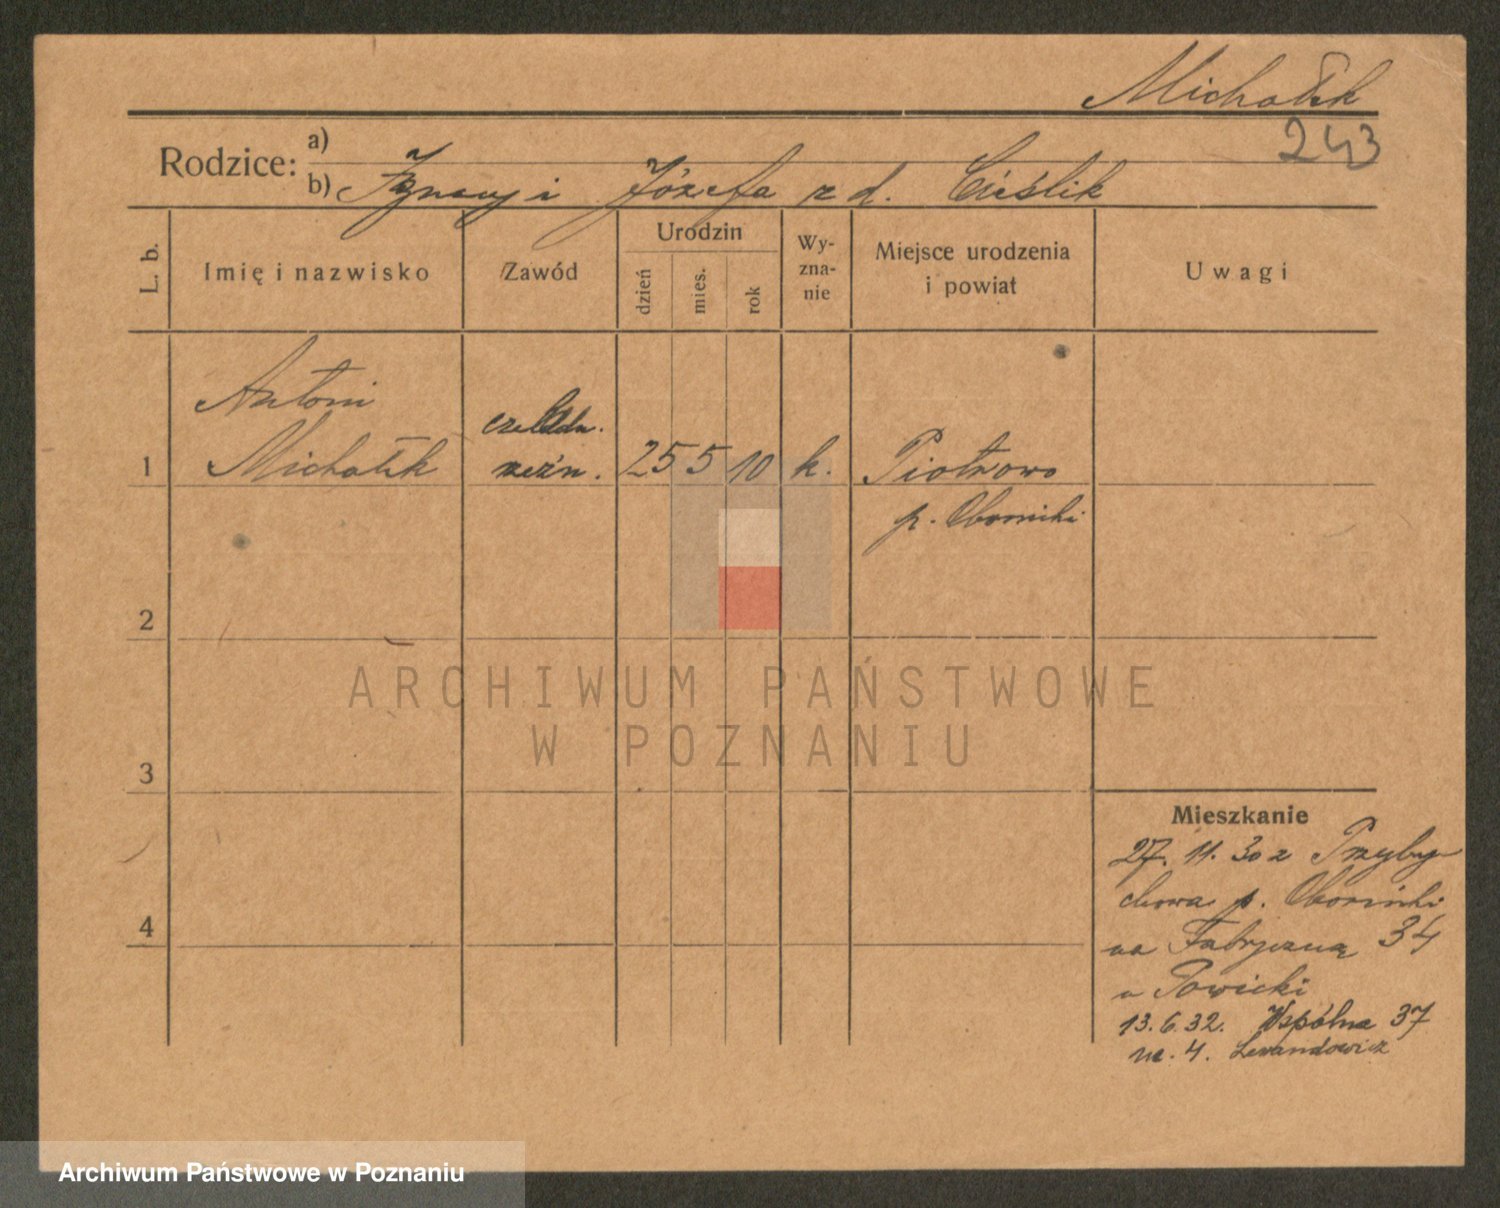 Michałek
243
Rodzice:
a)
b) Ignacy i Józefa z d. Cieślik
L. b.
Imię i nazwisko
Zawód
Urodzin
dzień
mies.
rok
Wy-
zna-
nie
Miejsce urodzenia
i powiat
Uwagi
Antoni
czeladn.
1 Michałek rzeźn. 25 5 10 k. Piotrowo
p. Oborniki
2
3
4
ARCHIWUM PAŃSTWOWE
W POZNANIU
Mieszkanie
27. 11. 30 z Przyby-
chowa p. Oborniki
na Fabryczną 34
u
13. 6. 32. Wspólna 37
m. 4. Lewandowicz
Archiwum Państwowe w Poznaniu